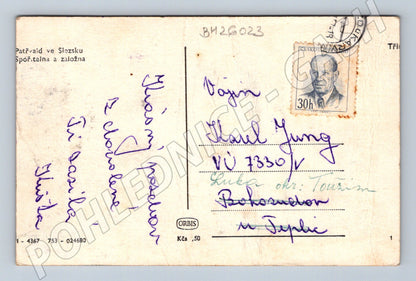 BH26023
Petřvald ve Slezsku
Spořitelna a záložna
Krásný pozdrav
z dovolené
Ti zasílá
Vojín
Karel Jung
VÚ 7330/V
Luka okr: Toužim
Bohosudov
u Teplic
30h
ORBIS
Kčs ,50
1 - 4367 753 - 024680
POHLEDNICE - CZ